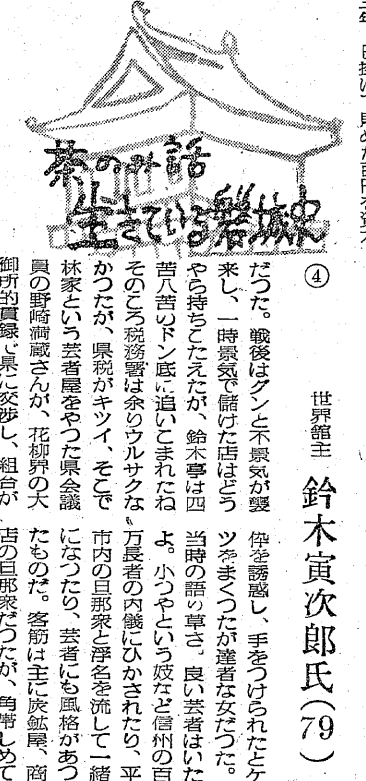 茶のみ話
生きている磐城史
④
世界館主
鈴木寅次郎氏(79)
だつた。戦後はグンと不景気が襲
来し、一時景気で儲けた店はどう
やら持ちこたえたが、鈴木亭は四
苦八苦のドン底に追いこまれたね
そのころ税務署は余りウルサクな
かつたが、県税がキツイ、そこで
林家という芸者屋をやつた県会議
員の野崎満蔵さんが、花柳界の大
御所的貫録で県に交渉し、組合が
伜を誘惑し、手をつけられたとケ
ツをまくつたが達者な女だつた。
当時の語り草さ。良い芸者はいた
よ。小つやという妓など信州の百
万長者の内儀にひかされたり、平
市内の旦那衆と浮名を流して一緒
になつたり、芸者にも風格があつ
たものだ。客筋は主に炭鉱屋、商
店の旦那衆だつたが、角帯しめて